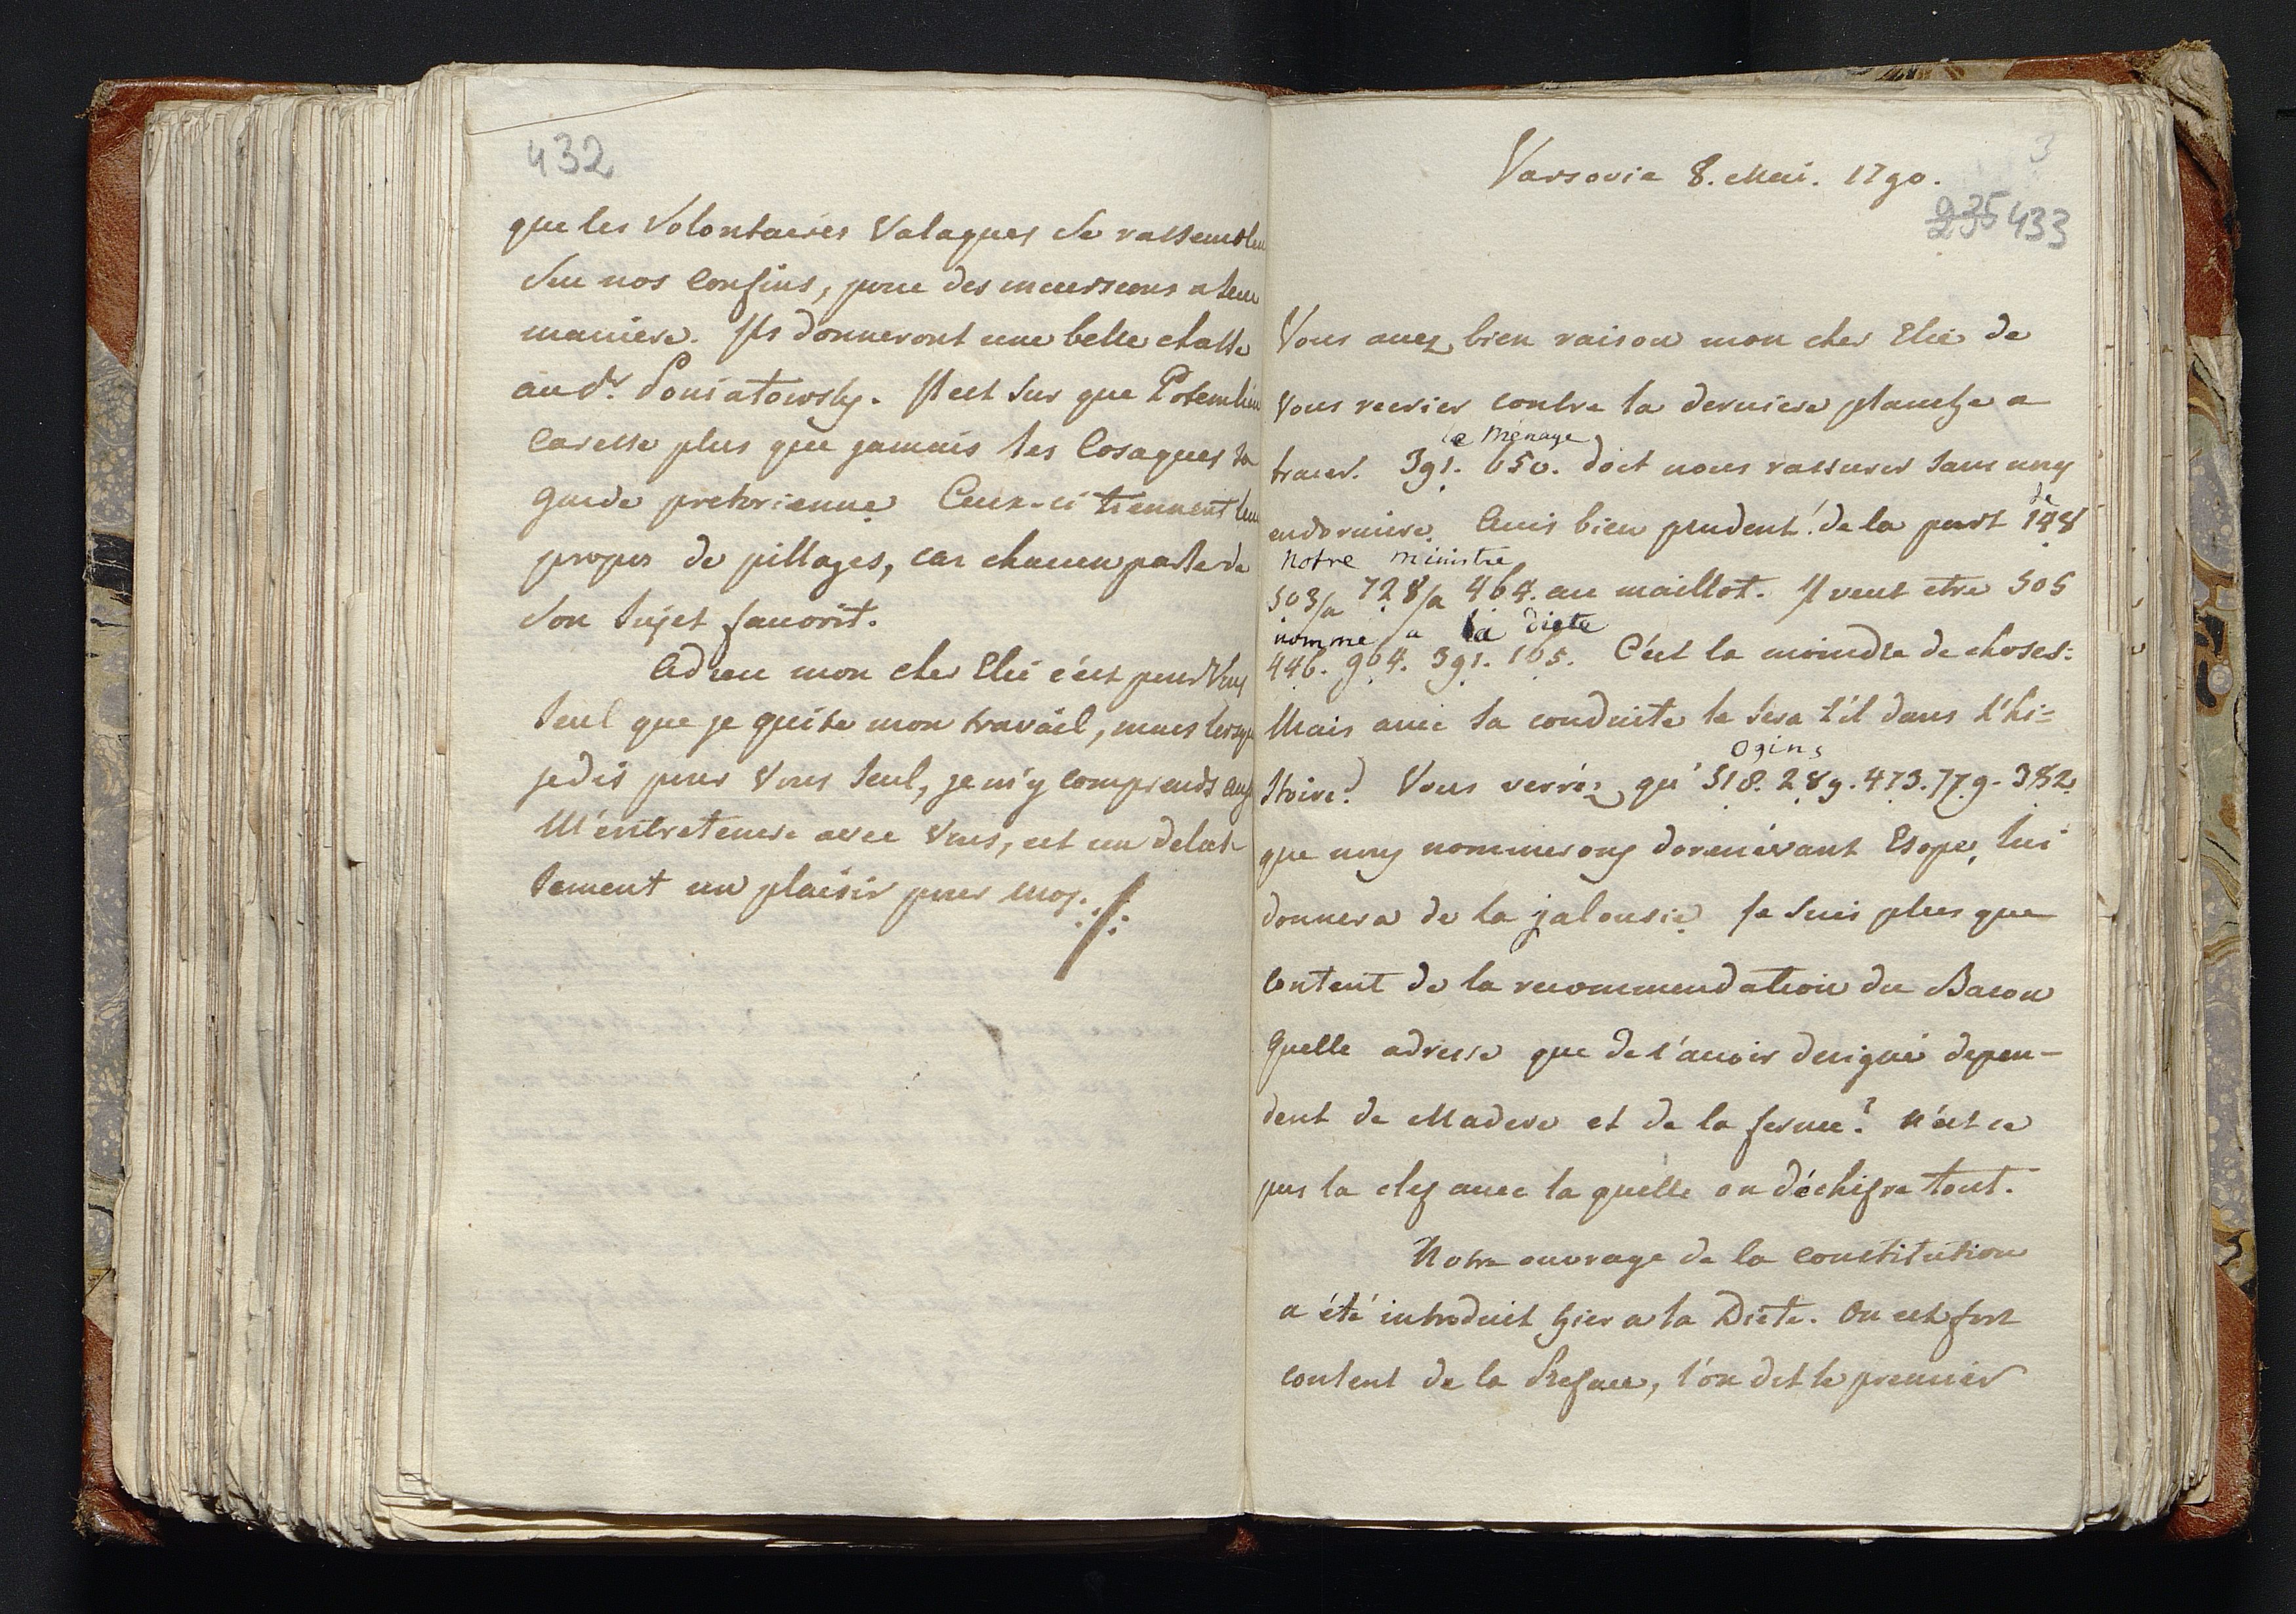 432
que les Volontaires Valaques se rassemblent
sur nos Confins, pour des incursions a leur
maniere. Ils donneront une belle chasse
au Pr. Poniatowsky. Il est sur que Potemkin
Caresse plus que jamais les Cosaques sa
Garde pretorienne Ceux-ci tiennent leur
propos de pillages, car chacun parle de
son sujet favorit.
Adieu mon cher Elie c'est pour Vous
seul que je quite mon travail, mais lorsque
je dis pour Vous seul, je m'y comprends aussi
M'entretenir avec Vous, est un delas-
sement un plaisir pour moy.
Varsovie 8. Mai. 1790.
3
235 433
Vous avez bien raison mon cher Elie de
Vous recrier contre la derniere planche a
le Ménage
tracer. 391. 650. doit nous rassurer sans nous
de
endormire. Avis bien prudent! de la part 148
Notre Ministre
503/a 728/a 464. au maillot. Il veut etre 505
nomme a la diete
446. 904. 391. 165. C'est la moindre de choses:
Mais avec sa conduite le sera t'il dans l'hi=
Ogins
stoire? Vous verréz qu' 518. 289. 473. 779. 382.
que nous nommerons dorenavant Esope, lui
donnera de la jalousie. Je suis plus que
Content de la recommendation du Baron
Quelle adresse que de l'avoir designé depen-
dent de Madere et de la ferme? N'est ce
pas la clef avec la quelle on déchifre tout.
Notre ouvrage de la constitution
a été introduit hier a la Diete. On est fort
content de la Preface, l'on dit le premier